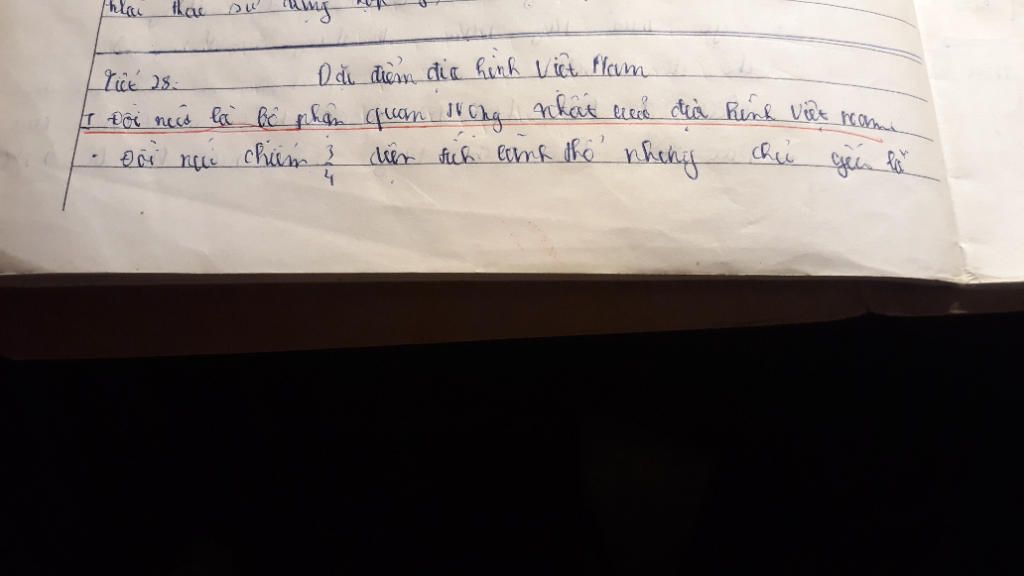 khai thác sử dụng
Tiết 28. Đặc điểm địa hình Việt Nam
I Đồi núi là bộ phận quan trọng nhất của địa hình Việt Nam
. Đồi núi chiếm 3/4 diện tích lãnh thổ nhưng chủ yếu là